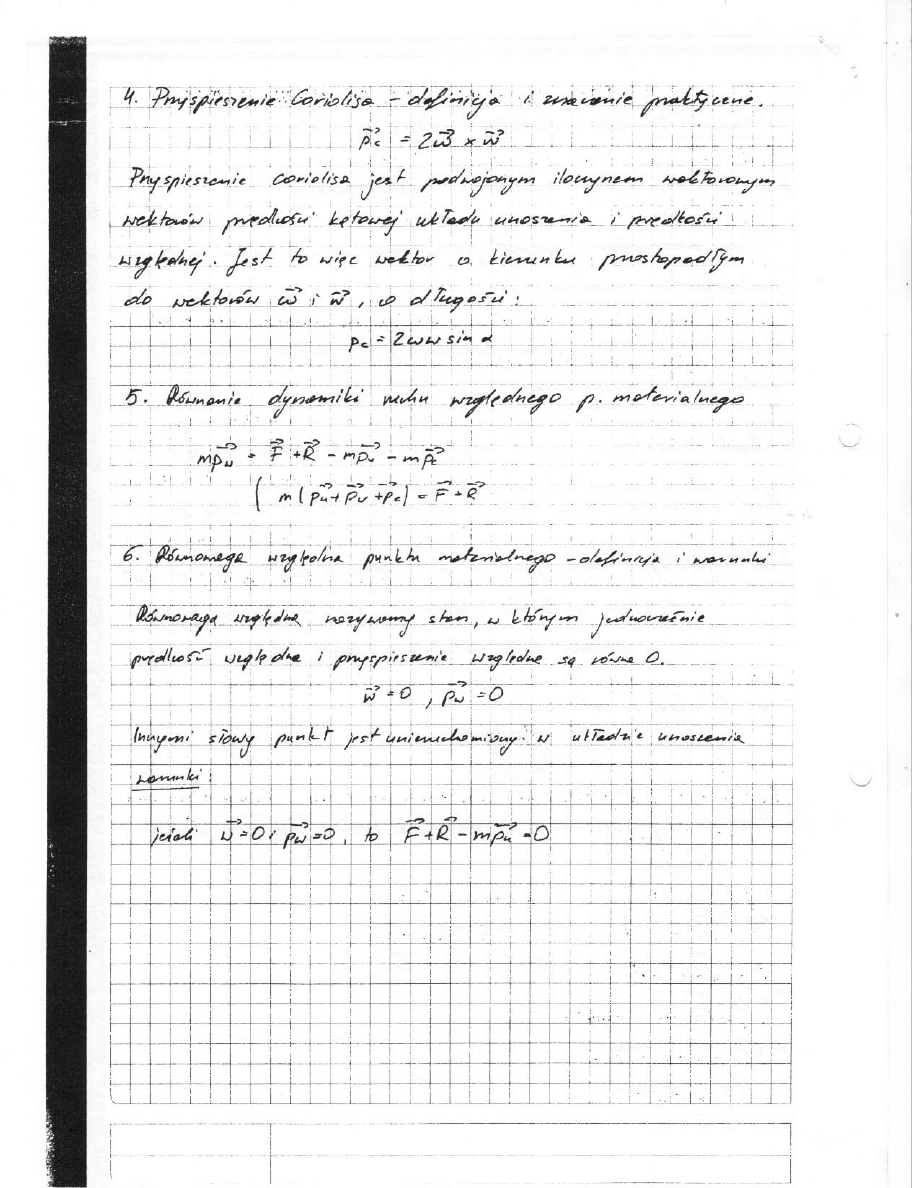 4. Przyspieszenie Coriolisa – definicja i znaczenie praktyczne.
p⃗c = 2ω⃗ × w⃗
Przyspieszenie coriolisa jest podwojonym iloczynem wektorowym
wektorów prędkości kątowej układu unoszenia i prędkości
względnej. Jest to więc wektor o kierunku prostopadłym
do wektorów ω⃗ i w⃗, o długości:
pc = 2ωw sin α
5. Równanie dynamiki ruchu względnego p. materialnego
mp⃗w = F⃗ + R⃗ – mp⃗u – mp⃗c
( m(p⃗u + p⃗w + p⃗c) = F⃗ + R⃗
6. Równowaga względna punktu materialnego – definicja i warunki
Równowagą względną nazywamy stan, w którym jednocześnie
prędkość względna i przyspieszenie względne są równe 0.
w⃗ = 0 , p⃗w = 0
Innymi słowy punkt jest unieruchomiony w układzie unoszenia
warunki:
jeżeli w⃗ = 0 i p⃗w = 0, to F⃗ + R⃗ – mp⃗u = 0